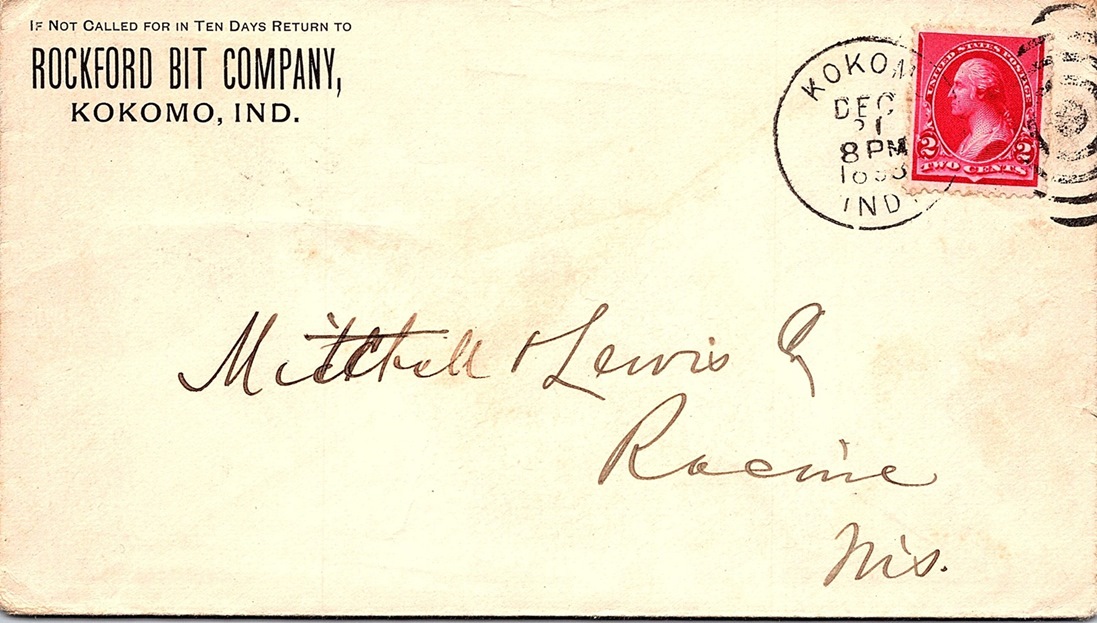 IF NOT CALLED FOR IN TEN DAYS RETURN TO
ROCKFORD BIT COMPANY,
KOKOMO, IND.
KOKOMO
DEC
21
8 PM
IND.
UNITED STATES POSTAGE
2 2
TWO CENTS
Mitchell & Lewis Co
Racine
Wis.